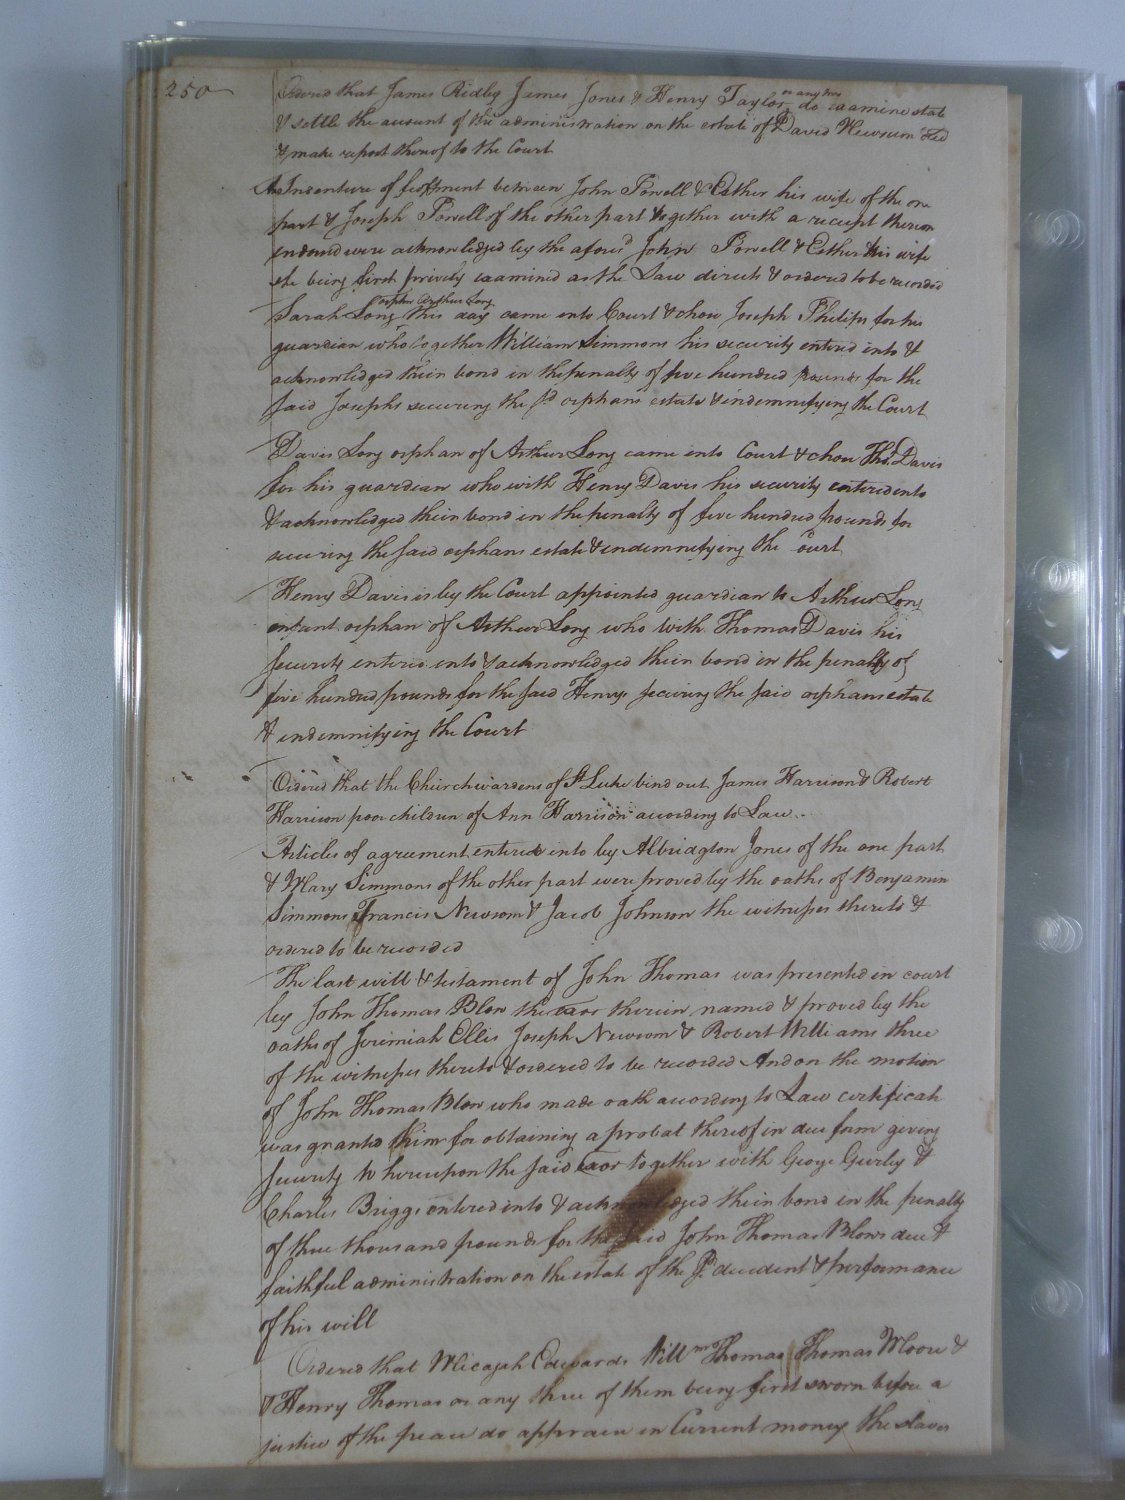 250
Ordered that James Ridley James Jones & Henry Taylor or any two do examine state
& settle the account of the administration on the estate of David Newsum decd
& make report thereof to the Court
An Indenture of feoffment between John Powell & Esther his wife of the one
part & Joseph Powell of the other part together with a receipt thereon
endorsed were acknowledged by the aforesd John Powell & Esther his wife
she being first privily examined as the Law directs & ordered to be recorded
Sarah Long orphan Arthur Long this day came into Court & chose Joseph Philips for her
guardian who together William Simmons his security entered into &
acknowledged their bond in the penalty of five hundred pounds for the
said Josephs securing the sd orphans estate & indemnifying the Court
Davis Long orphan of Arthur Long came into Court & chose Thos. Davis
for his guardian who with Henry Davis his security entered into
& acknowledged their bond in the penalty of five hundred pounds for
securing the said orphans estate & indemnifying the Court
Henry Davis is by the Court appointed guardian to Arthur Long
infant orphan of Arthur Long who with Thomas Davis his
security entered into & acknowledged their bond in the penalty of
five hundred pounds for the said Henrys securing the said orphans estate
& indemnifying the Court
Ordered that the Churchwardens of St Luke bind out James Harrison & Robert
Harrison poor children of Ann Harrison according to Law
Articles of agreement entered into by Albridgton Jones of the one part
& Mary Simmons of the other part were proved by the oaths of Benjamin
Simmons Francis Newsom & Jacob Johnson the witnesses thereto &
ordered to be recorded
The last will & testament of John Thomas was presented in court
by John Thomas Blow the exor therein named & proved by the
oaths of Jeremiah Ellis Joseph Newsom & Robert Williams three
of the witnesses thereto & ordered to be recorded And on the motion
of John Thomas Blow who made oath according to Law certificate
was granted him for obtaining a probat thereof in due form giving
security whereupon the said Exor together with George Gurley &
Charles Briggs entered into & acknowledged their bond in the penalty
of three thousand pounds for the said John Thomas Blows due &
faithful administration on the estate of the sd. decedent & performance
of his will
Ordered that Micajah Edwards Willm Thomas Thomas Moore &
& Henry Thomas or any three of them being first sworn before a
justice of the peace do appraise in Current money the slaves